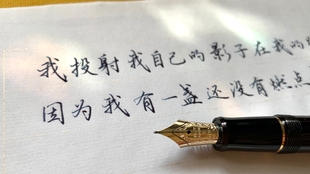 我投射我自己的影子在我的
因为我有一盏还没有燃点